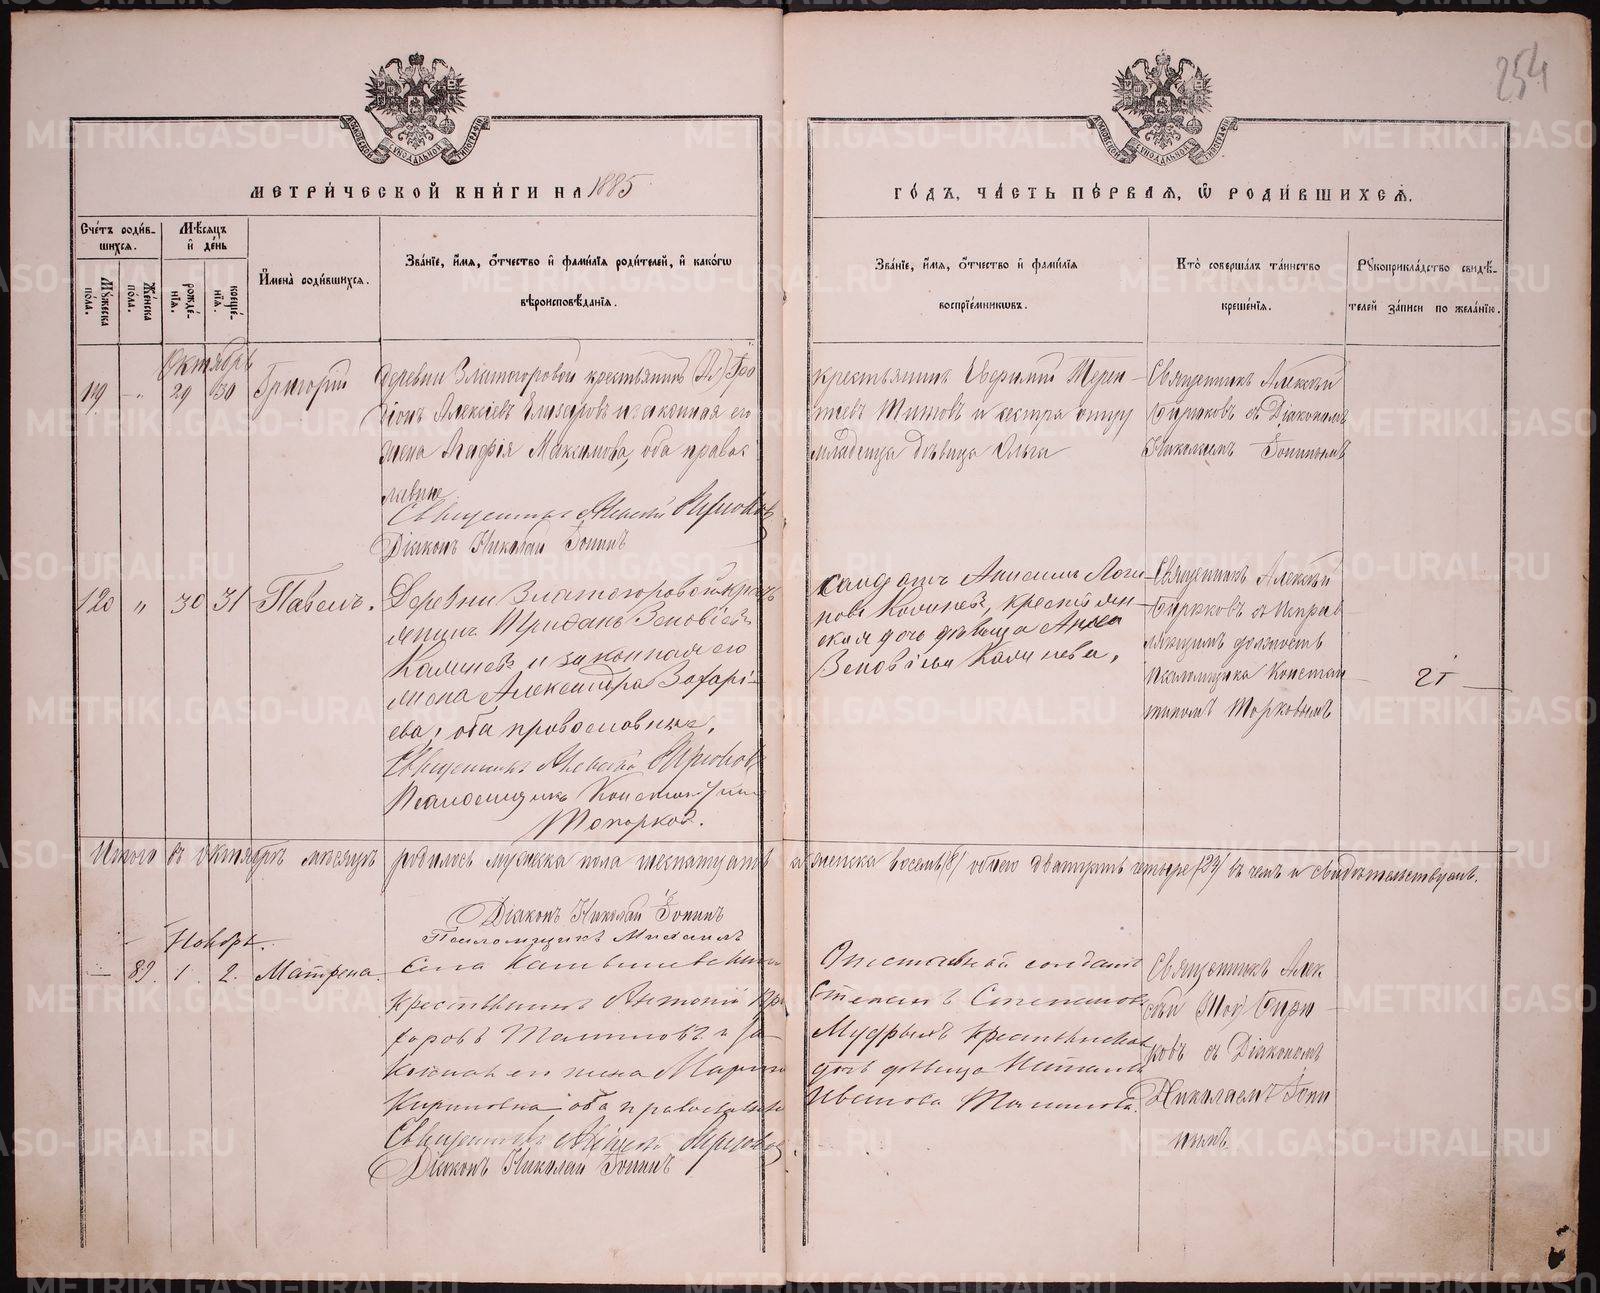 254
МЕТРИ́ЧЕСКОЙ КНИ́ГИ НА 1885
ГО́ДЪ, ЧА́СТЬ ПЕ́РВАЯ, Ѡ РОДИ́ВШИХСЯ.
Сче́тъ роди́в-
шихся.
Му́жеска по́ла.
Же́нска по́ла.
Мѣ́сяцъ и де́нь
рожде́-нїя.
креще́-нїя.
Имена̀ роди́вшихся.
Зва́нїе, и́мя, ѻ́тчество и фами́лїя роди́телей, и како́гѡ
вѣроисповѣ́данїя.
Зва́нїе, и́мя, ѻ́тчество и фами́лїя
воспрїе́мникѡвъ.
Кто̀ соверша́лъ та́инство
креще́нїя.
Рꙋкоприкла́дство свидѣ́-
телей за́писи по жела́нїю.
Октябрь
119 - „ 29 30 Григорій
Деревни Златогоровой крестьянинъ Иро
діонъ Алексѣевъ Елизаровъ и законная его
жена Агафія Максимова, оба правос
лавные
Священникъ Алексій Бирюковъ
Діаконъ Николай Іонинъ
крестьянинъ Терен-
тьевъ Титовъ и сестра отцу
младенца дѣвица Ольга
Священникъ Алексѣй
Бирюковъ съ Діакономъ
Николаемъ Іонинымъ
120 „ 30 31 Павелъ.
Деревни Златогоровой крест
янинъ Зеновіевъ
Калиневъ и законная его
жена Александра Захарі-
ева, оба православные.
Священникъ Алексѣй Бирюковъ
Псаломщикъ Константинъ
Топорковъ.
солдатъ Анисимъ Логи
новъ Калиневъ, крестьян-
ская дочь дѣвица Анна
Зеновіева Калинева,
Священникъ Алексѣй
Бирюковъ съ Исправ
ляющимъ должность
псаломщика Констан
тиномъ Торковымъ
Итого въ октябрѣ мѣсяцѣ родилось мужеска пола шестнатцать а женска восемь (8) обоего дватцать четыре (24) въ чемъ и свидѣтельствуемъ.
Діаконъ Николай Іонинъ
Псаломщикъ Михаилъ
Ноябрь.
— 89. 1. 2. Матрена
Села
крестьянинъ Антоній
форовъ и за-
конная его жена Марина
Кириловна оба православные
Священникъ Алексѣй Бирюковъ
Діаконъ Николай Іонинъ
Отставной солдатъ
Степанъ Степановъ
Мудрыхъ крестьянская
дочь дѣвица
Иванова
Священникъ Алек
сѣй Бирю
ковъ съ Діакономъ
Николаемъ Іони
нымъ